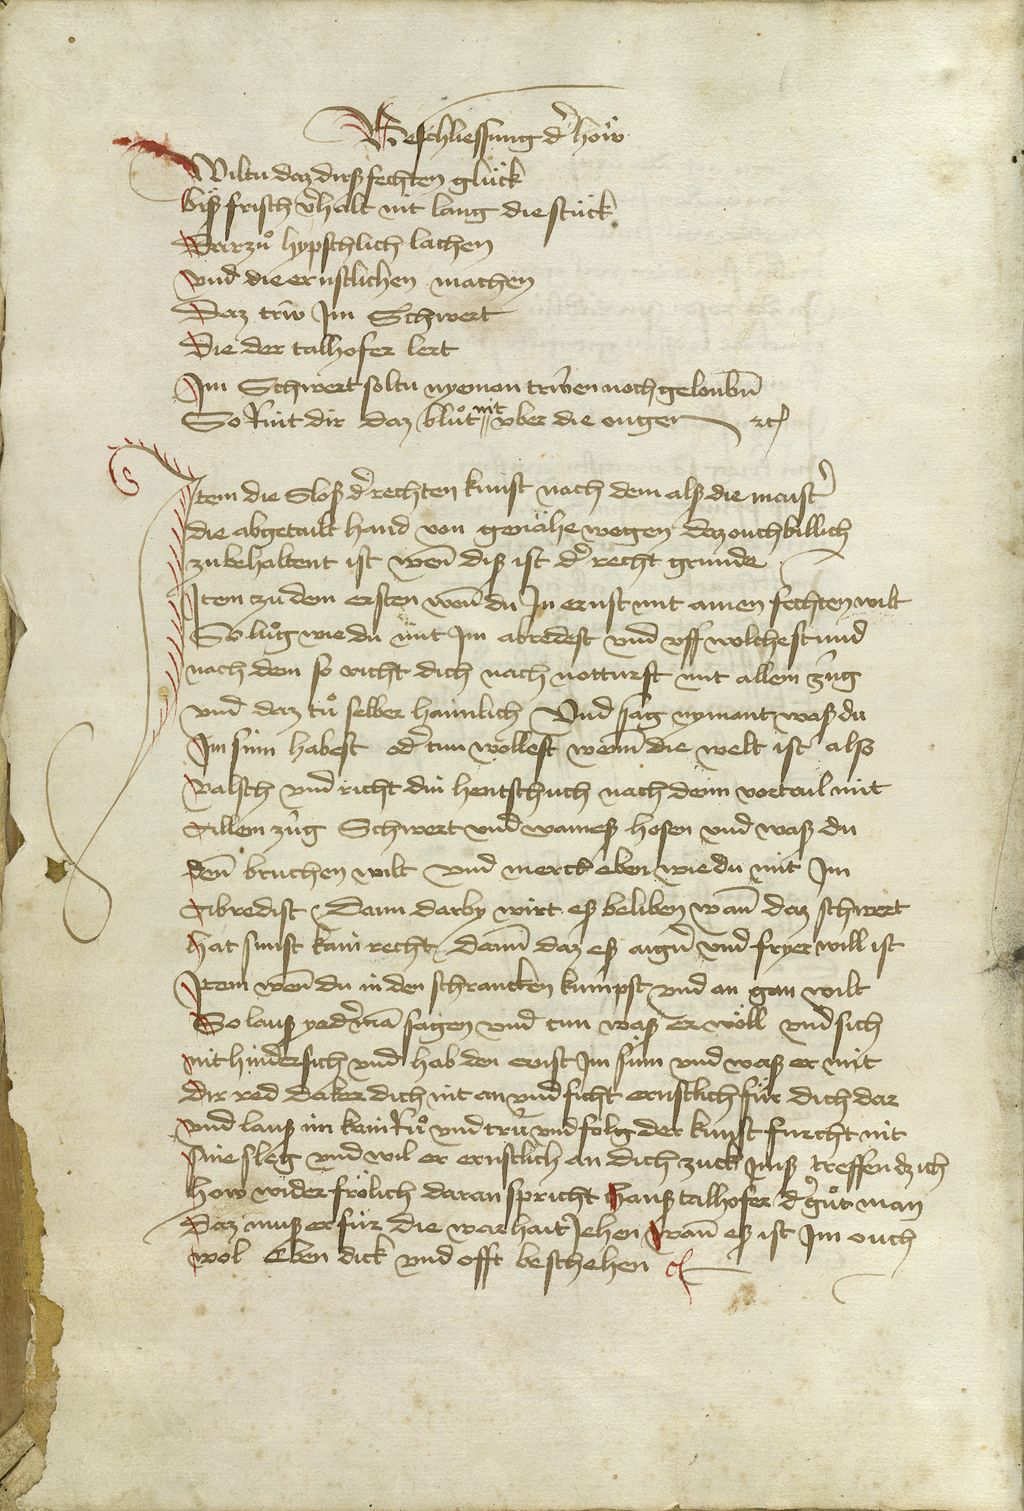 Beschliessung dˀ how
Wiltu daz dirß fechten glück
biß frisch vˀhalt nit lang die stuck
Darzuͦ hypschlich lachen
vnd die ernstlichen machen
Daz trw Im Schwert
Die der talhofer lert
Im Schwert soltu nyeman trwen noch geloubn̄
So Rint dir daz bluͦt nit vber die ougen ꝛc
Item die Sloß dˀ rechten kunst nach dem alß die maistˀ
die abgetailt hand von genähe wegen daz ouch billich
zu behaltent ist wen̄ diß ist dˀ recht grunde
Item zu dem ersten wen̄ du In ernst mit ainen fechten wilt
So luͦg wie du mit Im abredest vnd vff wolche stund
nach dem so richt dich nach notturft mit allem zûg
vnd daz tuͦ selber haimlich Vnd sag nymant waß du
Im sinn habest odˀ tun wollest wenn die welt ist also
valsch vnd richt din hentschuch nach deim vortail mit
Allem zûg Schwert vnd wameß hosen vnd waß du
den̄ bruchen wilt vnd merck eben wie du mit Im
Abredist Dann darby wirt eß beliben wan̄ daz schwert
hat sunst kain recht dann̄ daz eß aignˀ vnd fryer will ist
Item wen̄ du in den schrancken kumpst vnd an gan wilt
So lauß yedˀmā sagen vnd tun waß er wöll vnd sich
nit hindersich vnd hab den ernst Im sinn vnd waß er mit
Dir red daker dich nit an vnd ficht ernstlich für dich dar
vnd lauß im kain Ruͦ vnd trû vnd folg der kunst furcht nit
sine sleg vnd wil er ernstlich an dich zuck Inß treffen dz ich
how wider frölich daran spricht hanß talhofer dˀ guͦt man
Daz muß er für die warhait Jehen wan̄ eß ist Im ouch
wol Eben dick vnd offt beschehen